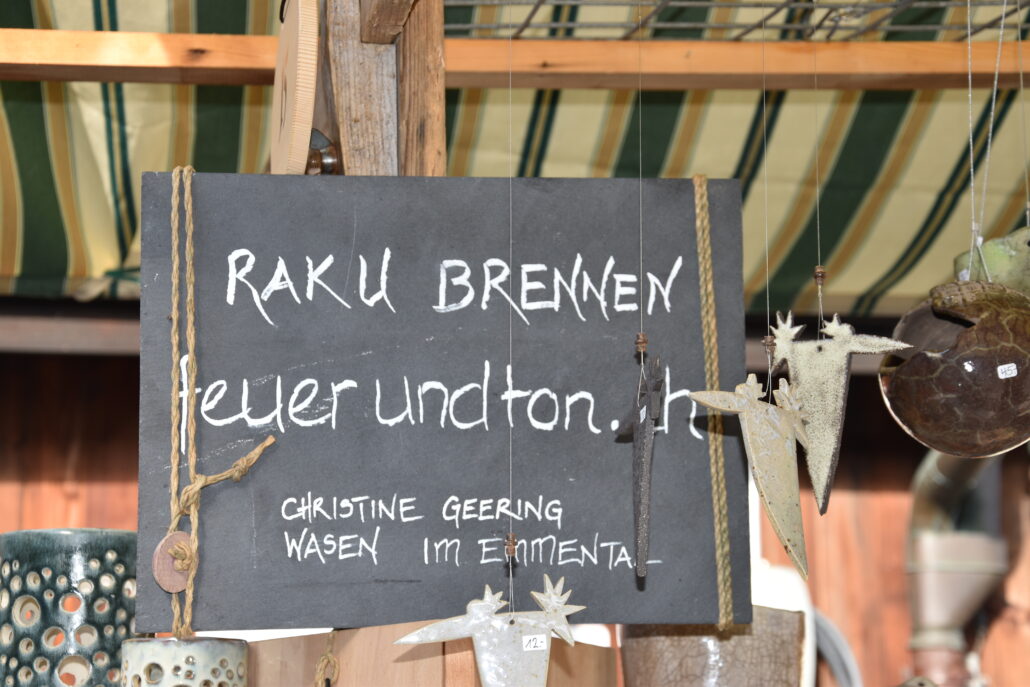 RAKU BRENNEN
feuerundton.ch
CHRISTINE GEERING
WASEN IM EMMENTAL
12.-
45.-